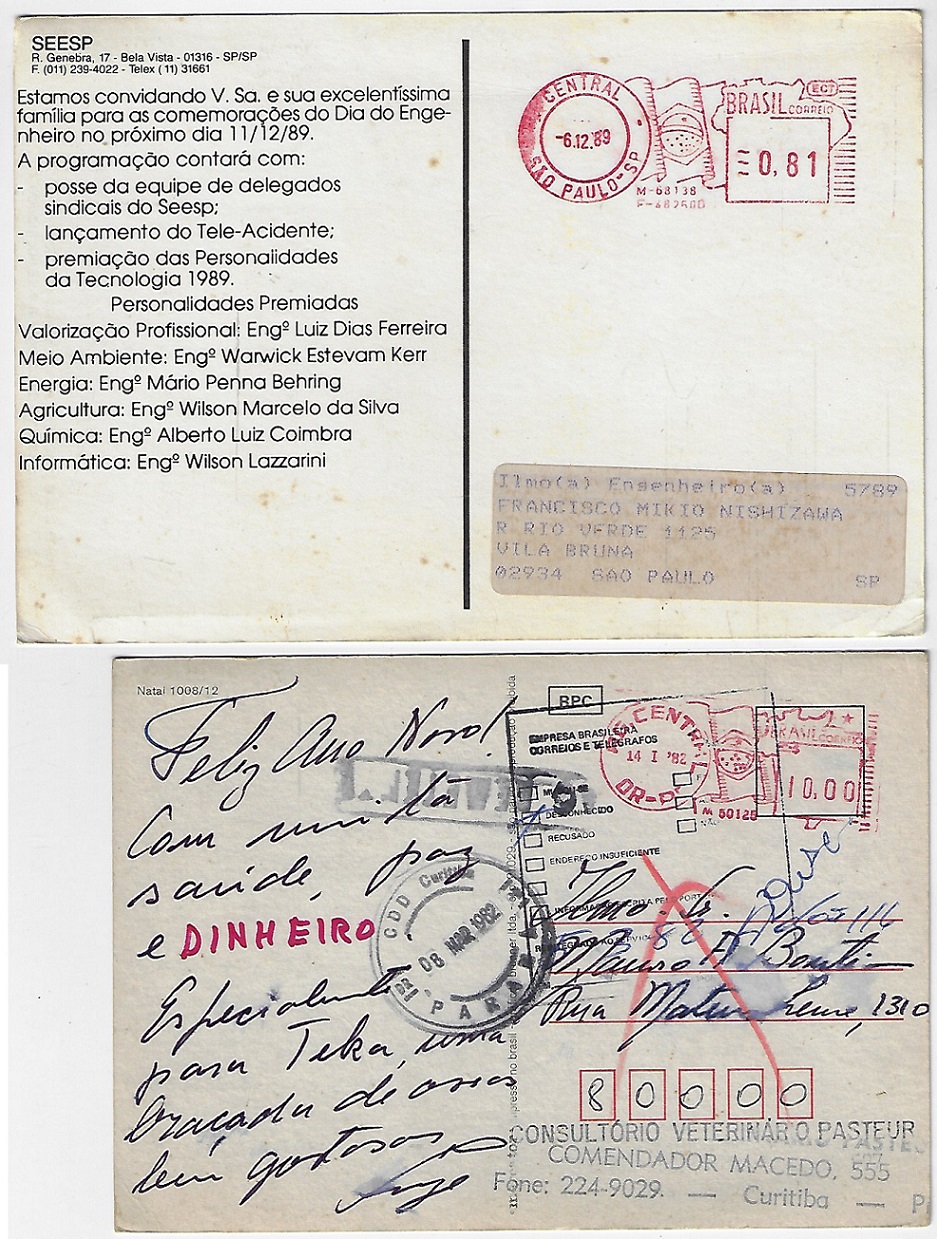 SEESP
R. Genebra, 17 - Bela Vista - 01316 - SP/SP
F. (011) 239-4022 - Telex (11) 31661
Estamos convidando V. Sa. e sua excelentíssima
família para as comemorações do Dia do Enge-
nheiro no próximo dia 11/12/89.
A programação contará com:
- posse da equipe de delegados
sindicais do Seesp;
- lançamento do Tele-Acidente;
- premiação das Personalidades
da Tecnologia 1989.
Personalidades Premiadas
Valorização Profissional: Engº Luiz Dias Ferreira
Meio Ambiente: Engº Warwick Estevam Kerr
Energia: Engº Mário Penna Behring
Agricultura: Engº Wilson Marcelo da Silva
Química: Engº Alberto Luiz Coimbra
Informática: Engº Wilson Lazzarini
CENTRAL
-6.12.89
SÃO PAULO-SP
BRASIL CORREIO
ECT
0,81
M-68138
Ilmo(a) Engenheiro(a) 5789
FRANCISCO MIKIO NISHIZAWA
R RIO VERDE 1125
VILA BRUNA
02934 SAO PAULO SP
Natal 1008/12
Feliz Ano Novo!
Com muita
saúde, paz
e DINHEIRO
Especialmente
para Teka, uma
braçada de
bem gostosas
Jorge
BPC
EMPRESA BRASILEIRA
CORREIOS E TELÉGRAFOS
DESCONHECIDO
RECUSADO
ENDEREÇO INSUFICIENTE
CENTRAL
14 I '82
BRASIL CORREIO
10,00
M 50125
CDD Curitiba
08 MAR 1982
PARANÁ
Ilmo. Sr.
Mauro A.
Rua Mateus Leme, 1310
80000
CONSULTÓRIO VETERINÁRIO PASTEUR
COMENDADOR MACEDO, 555
Fone: 224-9029. — Curitiba —